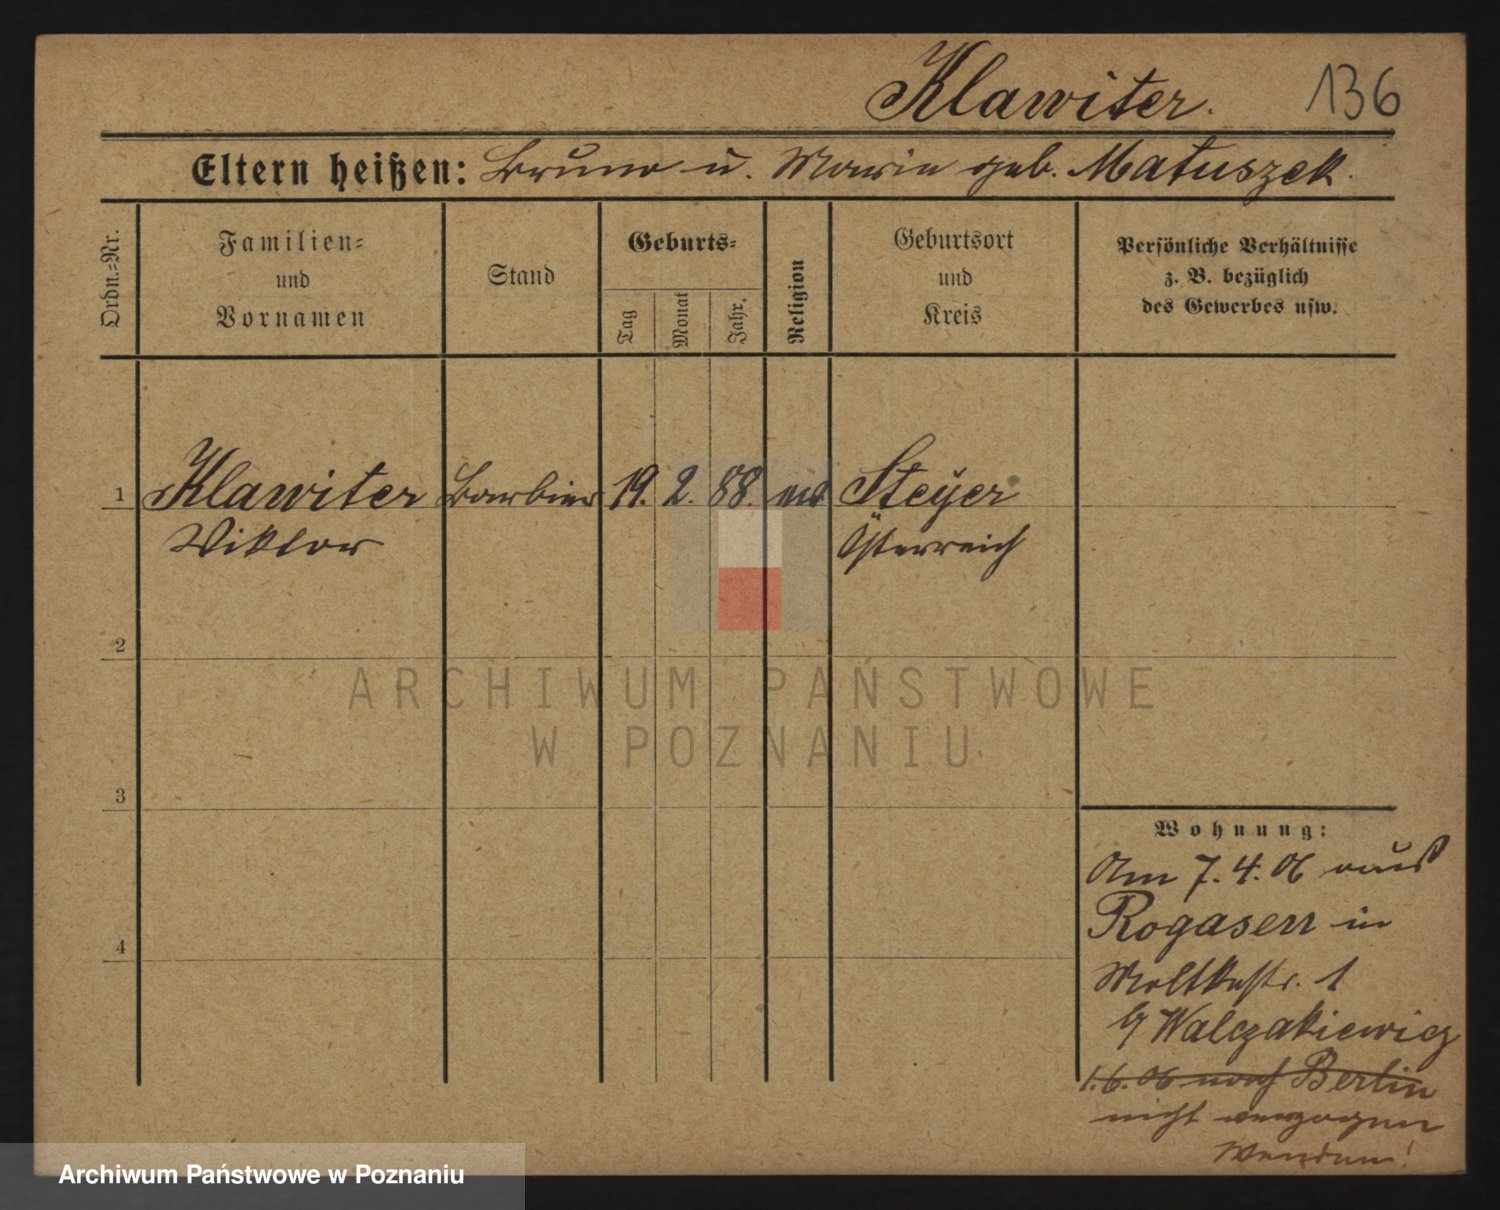 Klawiter. 136
Eltern heißen: Bruno u. Maria geb. Matuszek.
Ordn.=Nr.
Familien=
und
Vornamen
Stand
Geburts=
Tag
Monat
Jahr.
Religion
Geburtsort
und
Kreis
Persönliche Verhältnisse
z. B. bezüglich
des Gewerbes usw.
1 Klawiter Barbier 19. 2. 88. Steyer
Viktor Österreich
2
3
4
ARCHIWUM PAŃSTWOWE
W POZNANIU
Wohnung:
Am 7. 4. 06 aus
Rogasen in
Moltkestr. 1
Walczakiewicz
1. 6. 06 nach Berlin
nicht verzogen
Wenden!
Archiwum Państwowe w Poznaniu